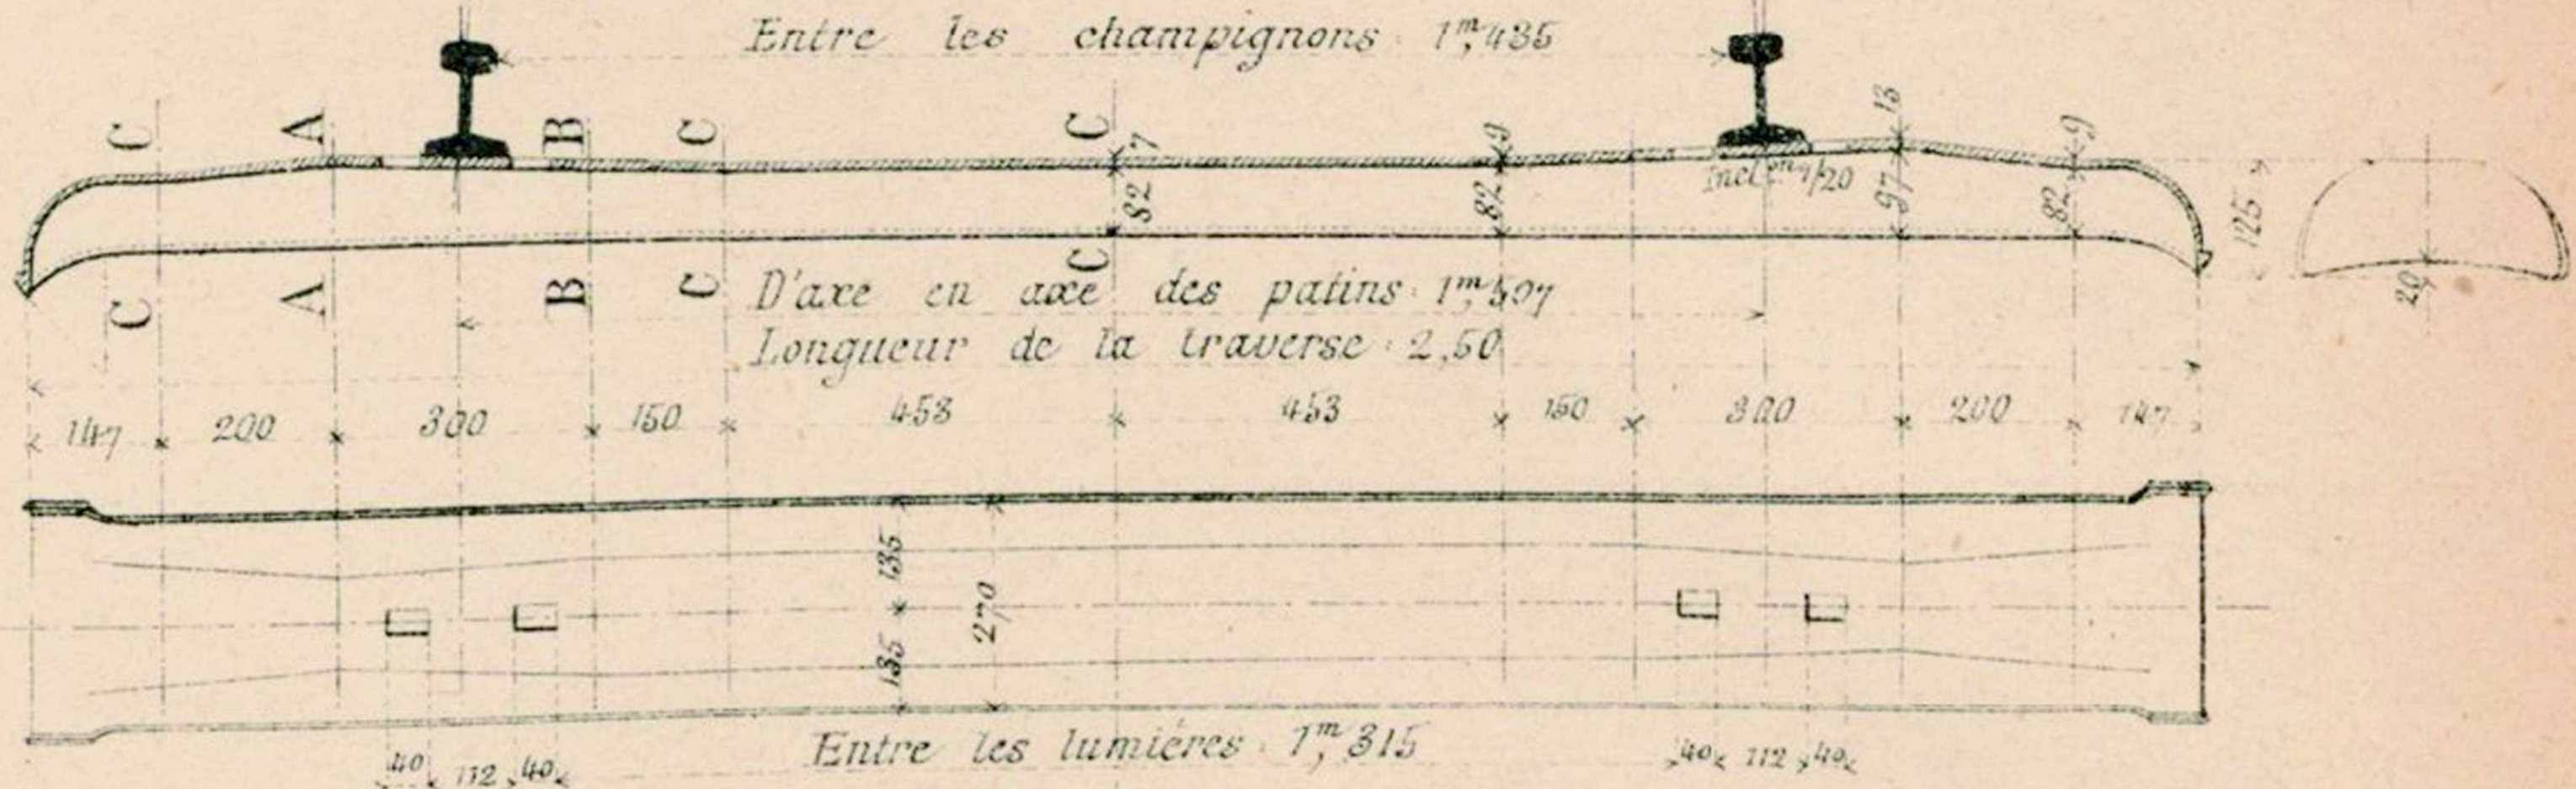 Entre les champignons 1m,435
C A B C C 7 9 13 9
82 82 Incl.on 1/20 97 82 125
C A B C C 20
D'axe en axe des patins 1m,507
Longueur de la traverse : 2,50
147 200 300 150 453 453 150 300 200 147
135
270
135
Entre les lumières : 1m,315
40 112 40 40 112 40